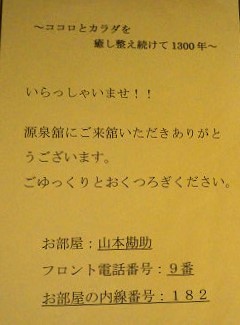 ～ココロとカラダを
癒し整え続けて1300年～
いらっしゃいませ！！
源泉舘にご来舘いただきありがと
うございます。
ごゆっくりとおくつろぎください。
お部屋：山本勘助
フロント電話番号：９番
お部屋の内線番号：１８２